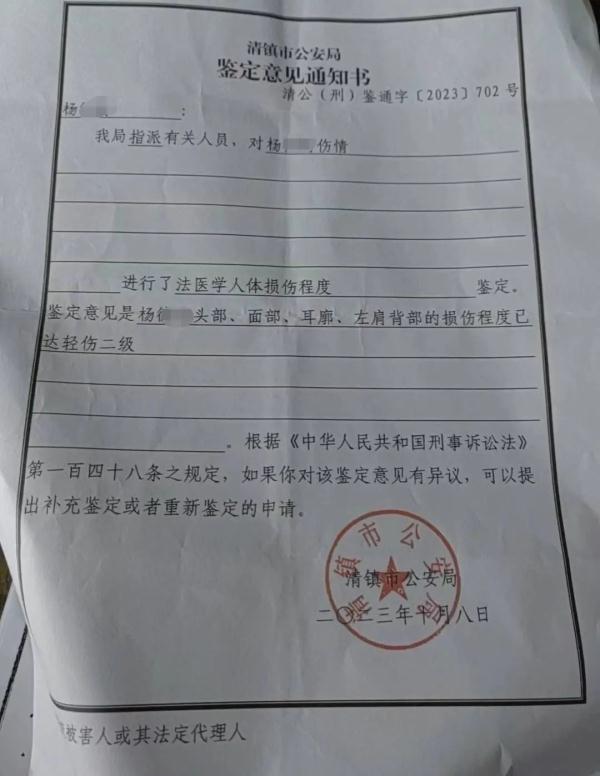 清镇市公安局
鉴定意见通知书
清公（刑）鉴通字〔2023〕702 号
杨：
我局指派有关人员，对杨伤情
进行了法医学人体损伤程度鉴定。
鉴定意见是杨头部、面部、耳廓、左肩背部的损伤程度已
达轻伤二级
。根据《中华人民共和国刑事诉讼法》
第一百四十八条之规定，如果你对该鉴定意见有异议，可以提
出补充鉴定或者重新鉴定的申请。
清镇市公安局
清镇市公安局
二〇二三年十月八日
被害人或其法定代理人